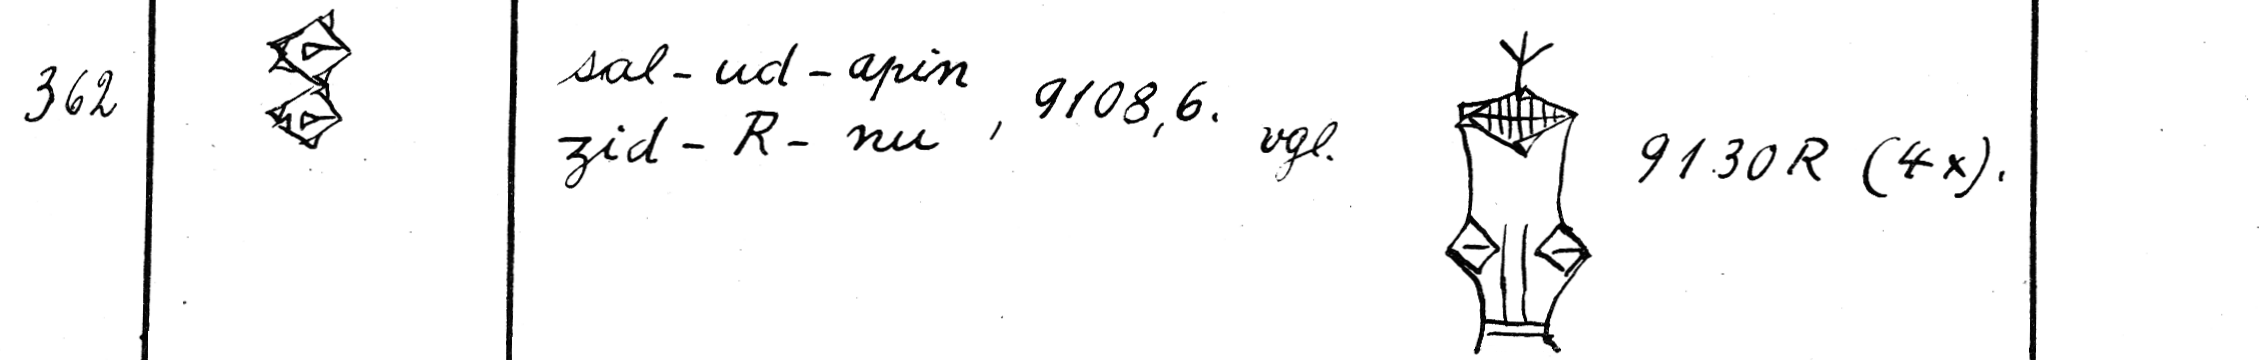 362
sal - ud - apin
zid - R - nu , 9108,6. vgl. 9130 R (4x).